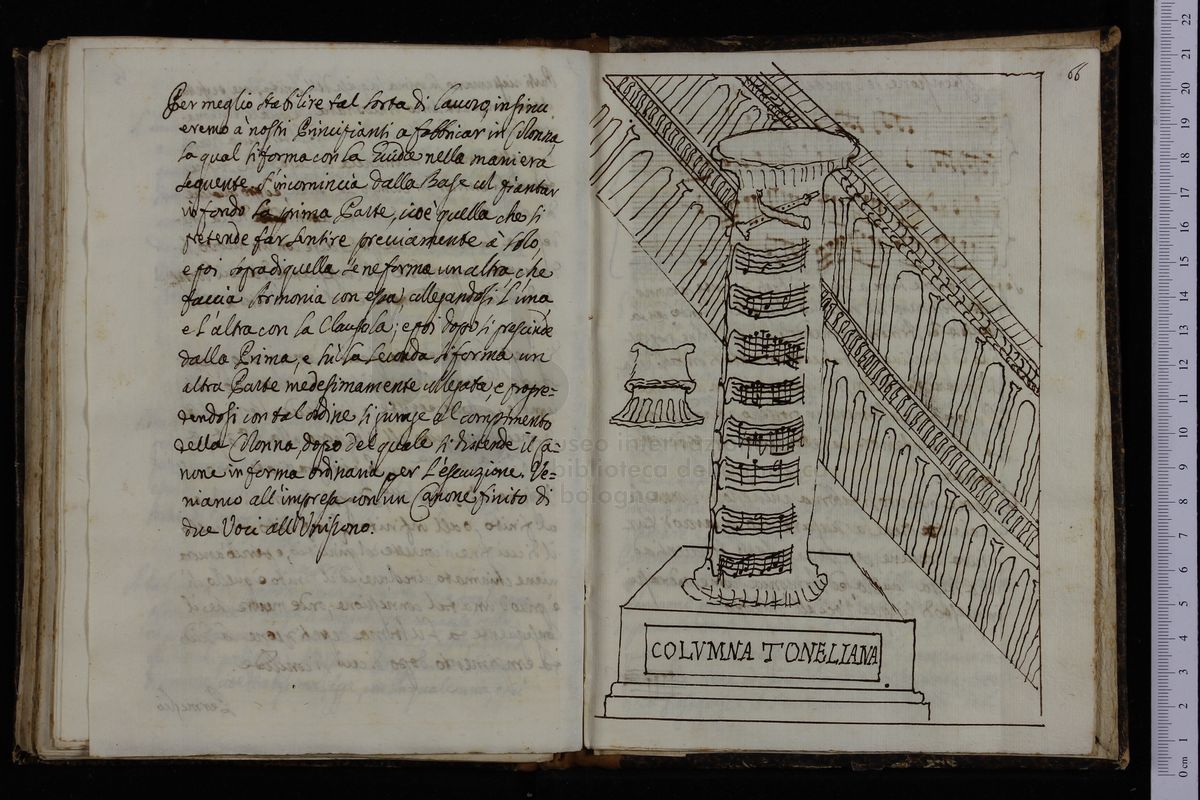 Per meglio stabilire tal sorta di lavoro, insinu
eremo à nostri Principianti a fabbricar in Colonna
la qual si forma con la Guida nella maniera
seguente. S'incomincia dalla Base col piantar
in fondo la prima Parte, cioè quella che si
pretende far sentire previamente à solo,
e poi sopra di quella se ne forma un altra che
faccia Armonia con essa, collegandosi l'una
e l'altra con la Clausola; e poi dopo si prescinde
dalla Prima, e sù la seconda si forma un
altra Parte medesimamente collegata, e prose-
dendosi con tal ordine si giunge al compimento
della Colonna, dopo del quale si distende il Ca=
none in forma ordinaria per l'esecuzione. Ve=
niamo all'impresa con un Canone finito di
due Voci all'Unisono.
66
COLVMNA TONELIANA
museo internazionale
biblioteca della
bologna
22
21
20
19
18
17
16
15
14
13
12
11
10
9
8
7
6
5
4
3
2
1
0 cm